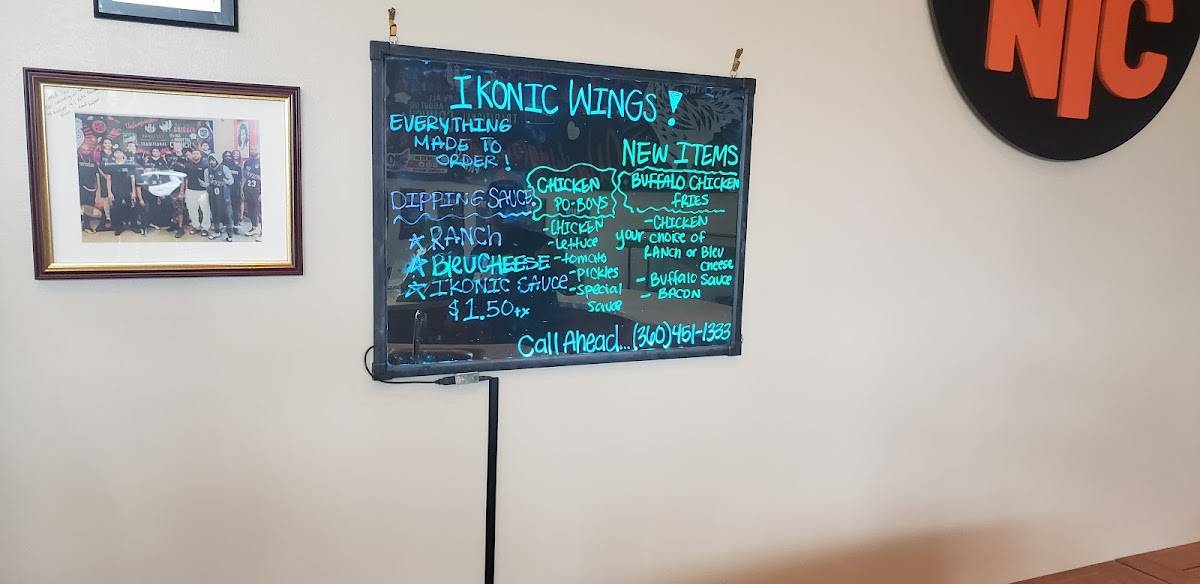 IKONIC WINGS!
EVERYTHING
MADE TO
ORDER!
DIPPING SAUCE
☆ RANCH
☆ BleuCHEESE
☆ IKONIC SAUCE
$1.50+x
CHICKEN
PO-BOYS
-CHICKEN
-lettuce
-tomato
-PICKLES
-special
sauce
NEW ITEMS
BUFFALO CHICKEN
FRIES
-CHICKEN
your choice of
RANCH or Bleu
cheese
- Buffalo Sauce
- BACON
Call Ahead...(360)451-1333
NIC
23